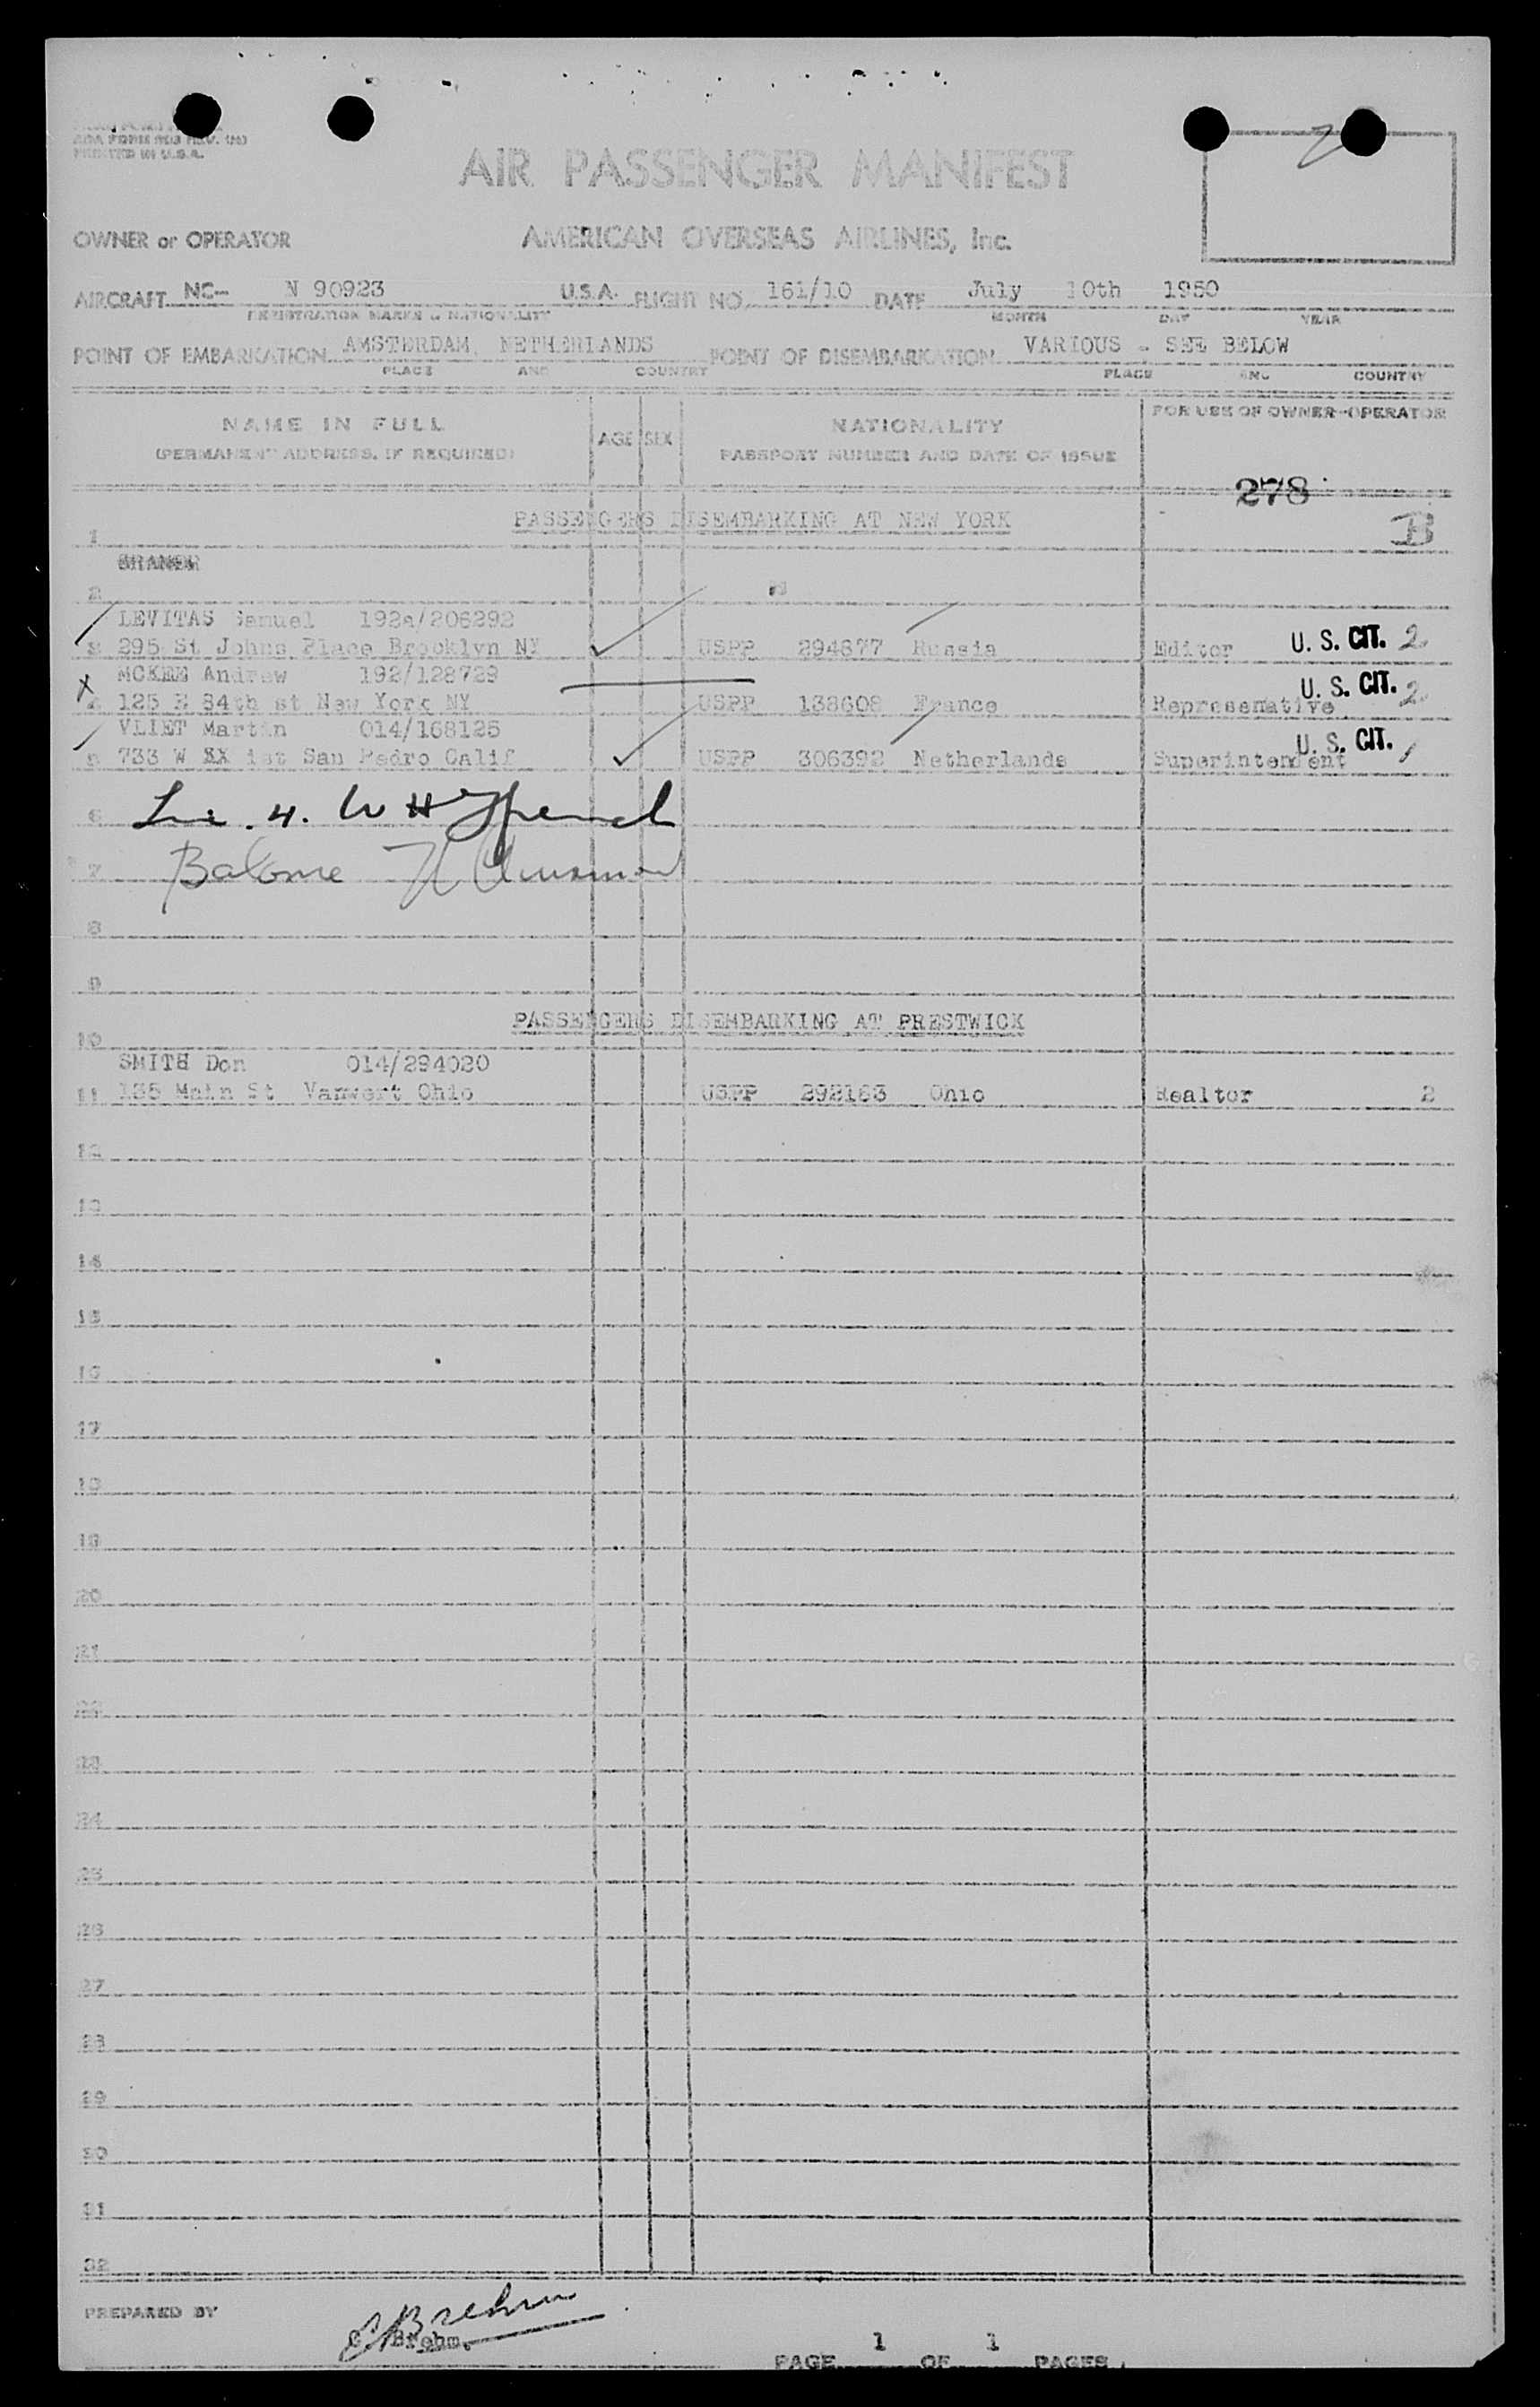 PRINTED IN U.S.A.
AIR PASSENGER MANIFEST
OWNER or OPERATOR AMERICAN OVERSEAS AIRLINES, Inc.
AIRCRAFT NC- N 90923 U.S.A. FLIGHT NO. 161/10 DATE July 10th 1950
REGISTRATION MARKS & NATIONALITY MONTH DAY YEAR
POINT OF EMBARKATION AMSTERDAM, NETHERLANDS POINT OF DISEMBARKATION VARIOUS - SEE BELOW
PLACE AND COUNTRY PLACE AND COUNTRY
NAME IN FULL AGE SEX NATIONALITY FOR USE OF OWNER-OPERATOR
(PERMANENT ADDRESS, IF REQUIRED) PASSPORT NUMBER AND DATE OF ISSUE
278
1 PASSENGERS DISEMBARKING AT NEW YORK B
2
LEVITAS Samuel 192a/206292
3 295 St Johns Place Brooklyn NY USPP 294877 Russia Editor U. S. CIT. 2
MCKEE Andrew 192/128729
4 125 E 84th st New York NY USPP 138608 France Represenative U. S. CIT. 2
VLIET Martin 014/168125
5 733 W XX 1st San Pedro Calif USPP 306392 Netherlands Superintendent U. S. CIT. 1
6
7
8
9
10 PASSENGERS DISEMBARKING AT PRESTWICK
SMITH Don 014/294020
11 135 Main St Vanwert Ohio USPP 292163 Ohio Realtor 2
12
13
14
15
16
17
18
19
20
21
22
23
24
25
26
27
28
29
30
31
32
PREPARED BY Brehm
Brehm.
PAGE 1 OF 1 PAGES